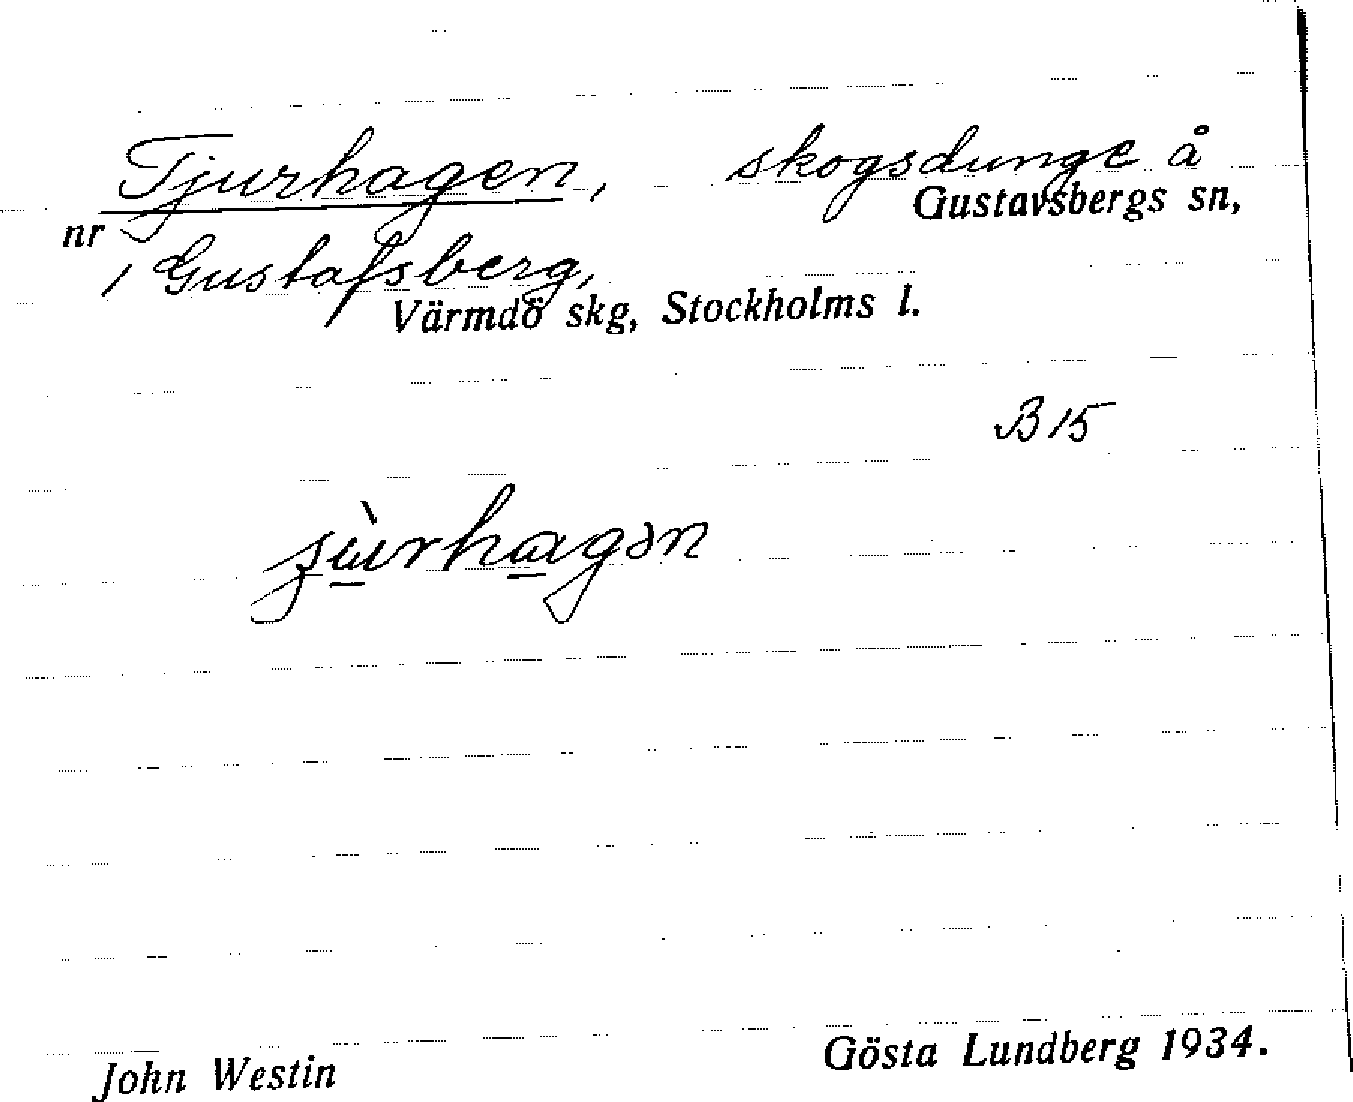 Tjurhagen, skogsdunge å
Gustavsbergs sn,
nr
1 Gustafsberg,
Värmdö skg, Stockholms l.
B 15
ʒu̠̇rha̠gən
John Westin
Gösta Lundberg 1934.